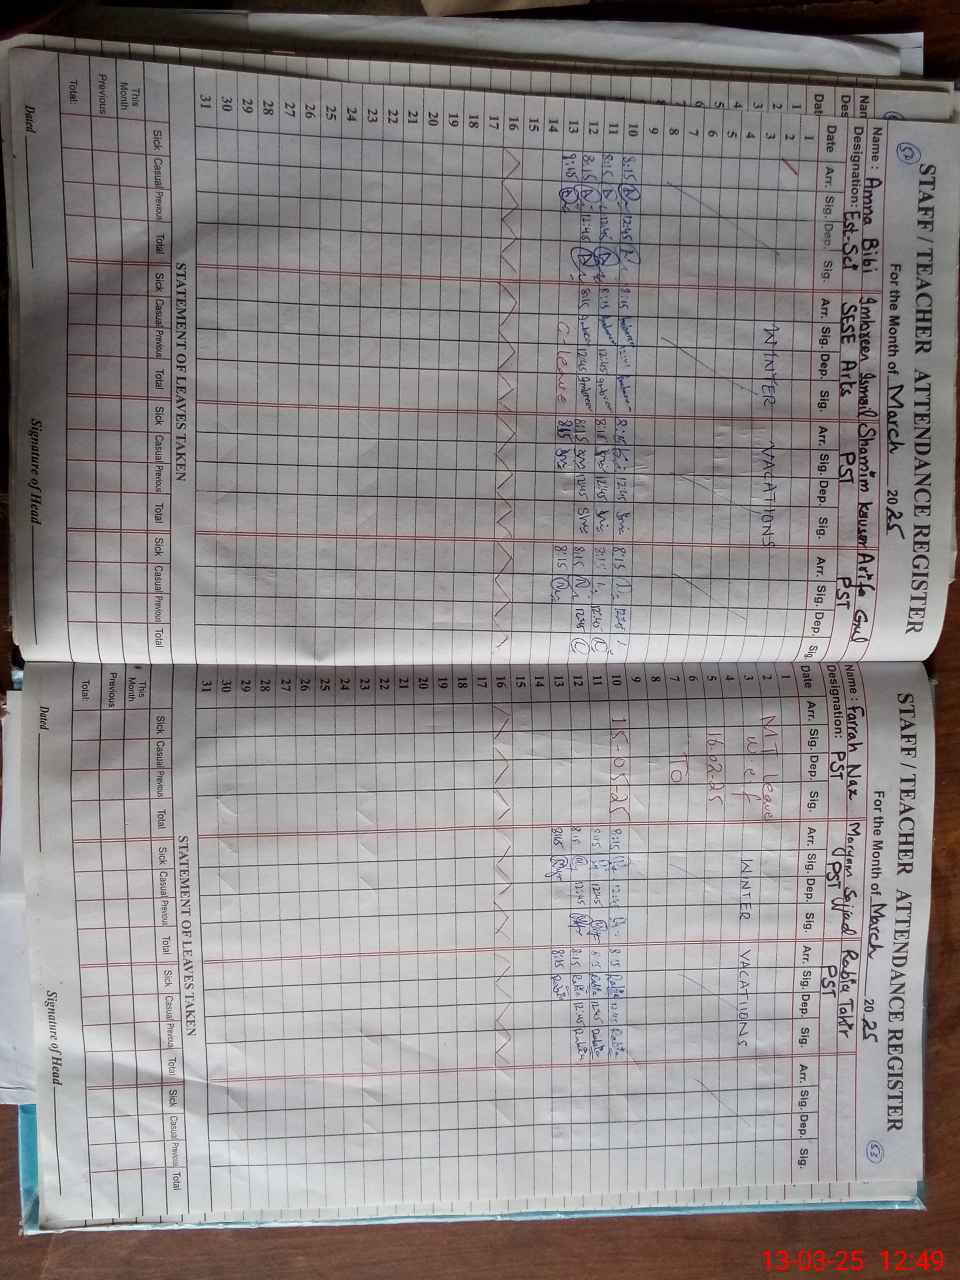 52
STAFF / TEACHER ATTENDANCE REGISTER
For the Month of March 2025
Name : Amna Bibi Imbreen Ismail Shamim kausar Arifa Gul
Designation: Est-Sci SESE Arts PST PST
Date Arr. Sig. Dep. Sig. Arr. Sig. Dep. Sig. Arr. Sig. Dep. Sig. Arr. Sig. Dep. Sig.
1
2
3 WINTER VACATIONS
4
5
6
7
8
9
10 8:15 12:45 8:15 8:15 12:45 8:15 12:45
11 8:15 12:45 8:15 12:45 8:15 12:45 8:15 12:40
12 8:15 12:45 8:15 12:45 8:15 12:45 8:15 12:45
13 9:45 C-leave 8:15 8:15
14
15
16
17
18
19
20
21
22
23
24
25
26
27
28
29
30
31
STATEMENT OF LEAVES TAKEN
Sick Casual Previous Total Sick Casual Previous Total Sick Casual Previous Total Sick Casual Previous Total
This Month
Previous
Total:
Dated Signature of Head
53
STAFF / TEACHER ATTENDANCE REGISTER
For the Month of March 2025
Name : Farrah Naz Maryam Sajjad Rabia Tahir
Designation: PST PST PST
Date Arr. Sig. Dep. Sig. Arr. Sig. Dep. Sig. Arr. Sig. Dep. Sig. Arr. Sig. Dep. Sig.
1
2 MT Leave
3 w e f WINTER VACATIONS
4
5 16-02-25
6
7 TO
8
9
10 15-05-25 8:15 12:45 8:15 Rabia 12:45 Rabia
11 8:15 12:45 8:15 Rabia 12:45 Rabia
12 8:15 12:45 8:15 Rabia 12:45 Rabia
13 8:15 8:15 Rabia
14
15
16
17
18
19
20
21
22
23
24
25
26
27
28
29
30
31
STATEMENT OF LEAVES TAKEN
Sick Casual Previous Total Sick Casual Previous Total Sick Casual Previous Total Sick Casual Previous Total
This Month
Previous
Total:
Dated Signature of Head
13-03-25 12:49